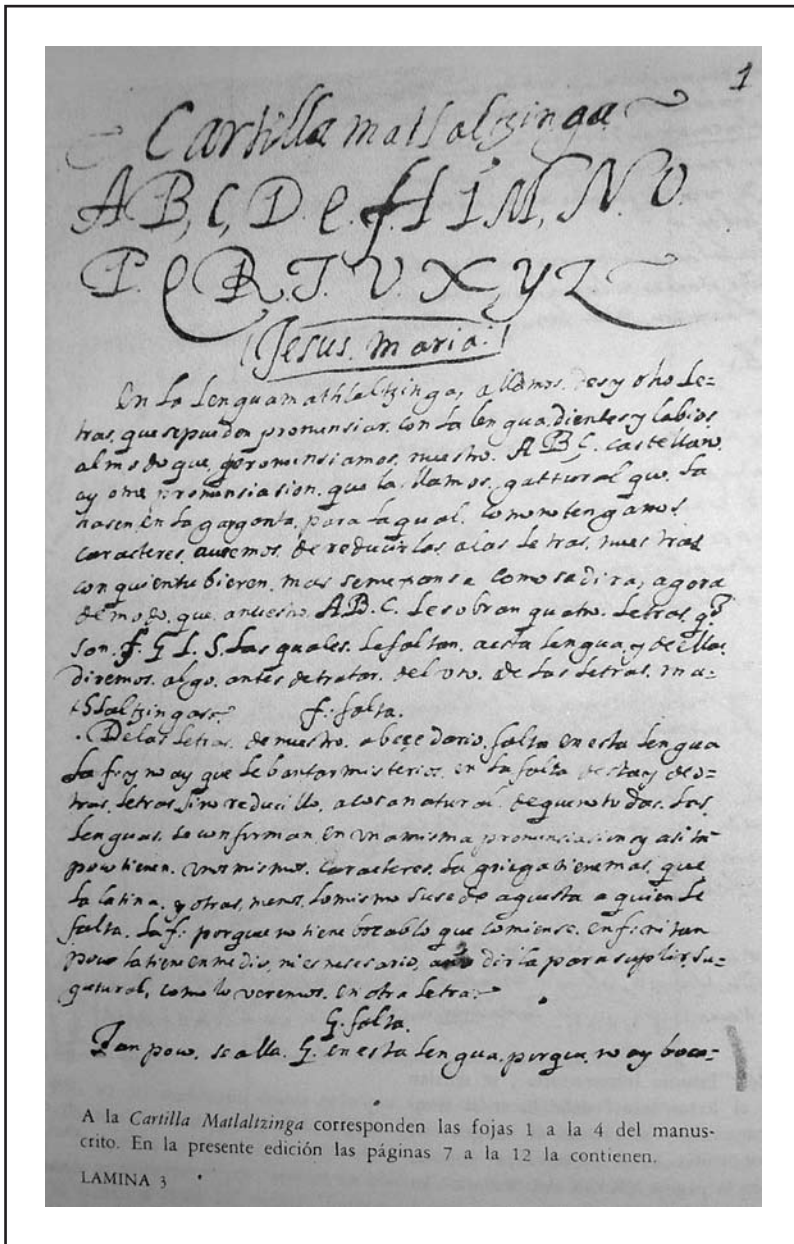 1
Cartilla matlaltzinga
A B, C, D. e. f. H I M, N. O.
P. Q R. T. V. X, Y Z
Jesus. maria.
En La Lenguamathlaltzinga, allamos. des y oho Le-
tras, que sepueden pronunsiar, con La lengua, dientes y labios
almodo que, pronunsiamos, nuestro. A B C. castellano,
ay otra pronunsiasion. que la llamos, guttural que La
hasen en La garganta, para Laqual. Comono tengamos
caracteres, auremos. de reducirlas alas Letras, nuestras
con quientubieren, mas semexansa como sedira, agora
demodo. que anuestro. A B. C. Lesobran quatro. Letras, q̃
son. f. G L. S. Las quales. Lefaltan. aesta Lengua, y deellas
diremos, algo. antes detratar. del uso. de Las Letras. ma-
tlaltzingas. f. falta.
. Delas Letras, de nuestro. abecedario, falta en esta Lengua
La f. y no ay que Lebantar misterios, en La falta destay deo-
tras, Letras, sino reducillo, acosa natural. deque no todas. Las,
Lenguas, Seconfirman, en una misma pronunsiasion y asi tã
poco tienen. unos mismos. caracteres. La griega tiene mas, que
La latina. y otras, menos, Lomismo susede aquesta, a quien Le
falta. La f: porque no tiene bocablo que comiense. en f: ni tan
poco la tiene en medio, ni es nesesario, aña dirla para suplir, Su-
gutural, como lo veremos. en otra Letra.
G. falta.
Tan poco. se alla. G. en esta Lengua, porque, no ay boca-
A la Cartilla Matlaltzinga corresponden las fojas 1 a la 4 del manus-
crito. En la presente edición las páginas 7 a la 12 la contienen.
LAMINA 3